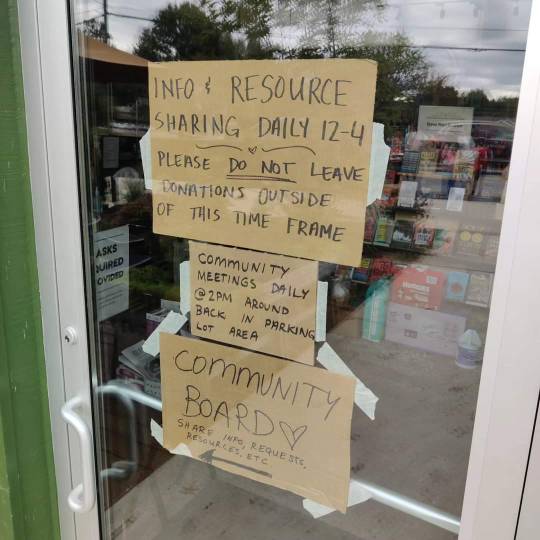 INFO & RESOURCE
SHARING DAILY 12-4
PLEASE DO NOT LEAVE
DONATIONS OUTSIDE
OF THIS TIME FRAME
COMMUNITY
MEETINGS DAILY
@ 2PM AROUND
BACK IN PARKING
LOT AREA
COMMUNITY
BOARD ♡
SHARE INFO, REQUESTS,
RESOURCES, ETC
ASKS
UIRED
OVIDED
HUGGIES